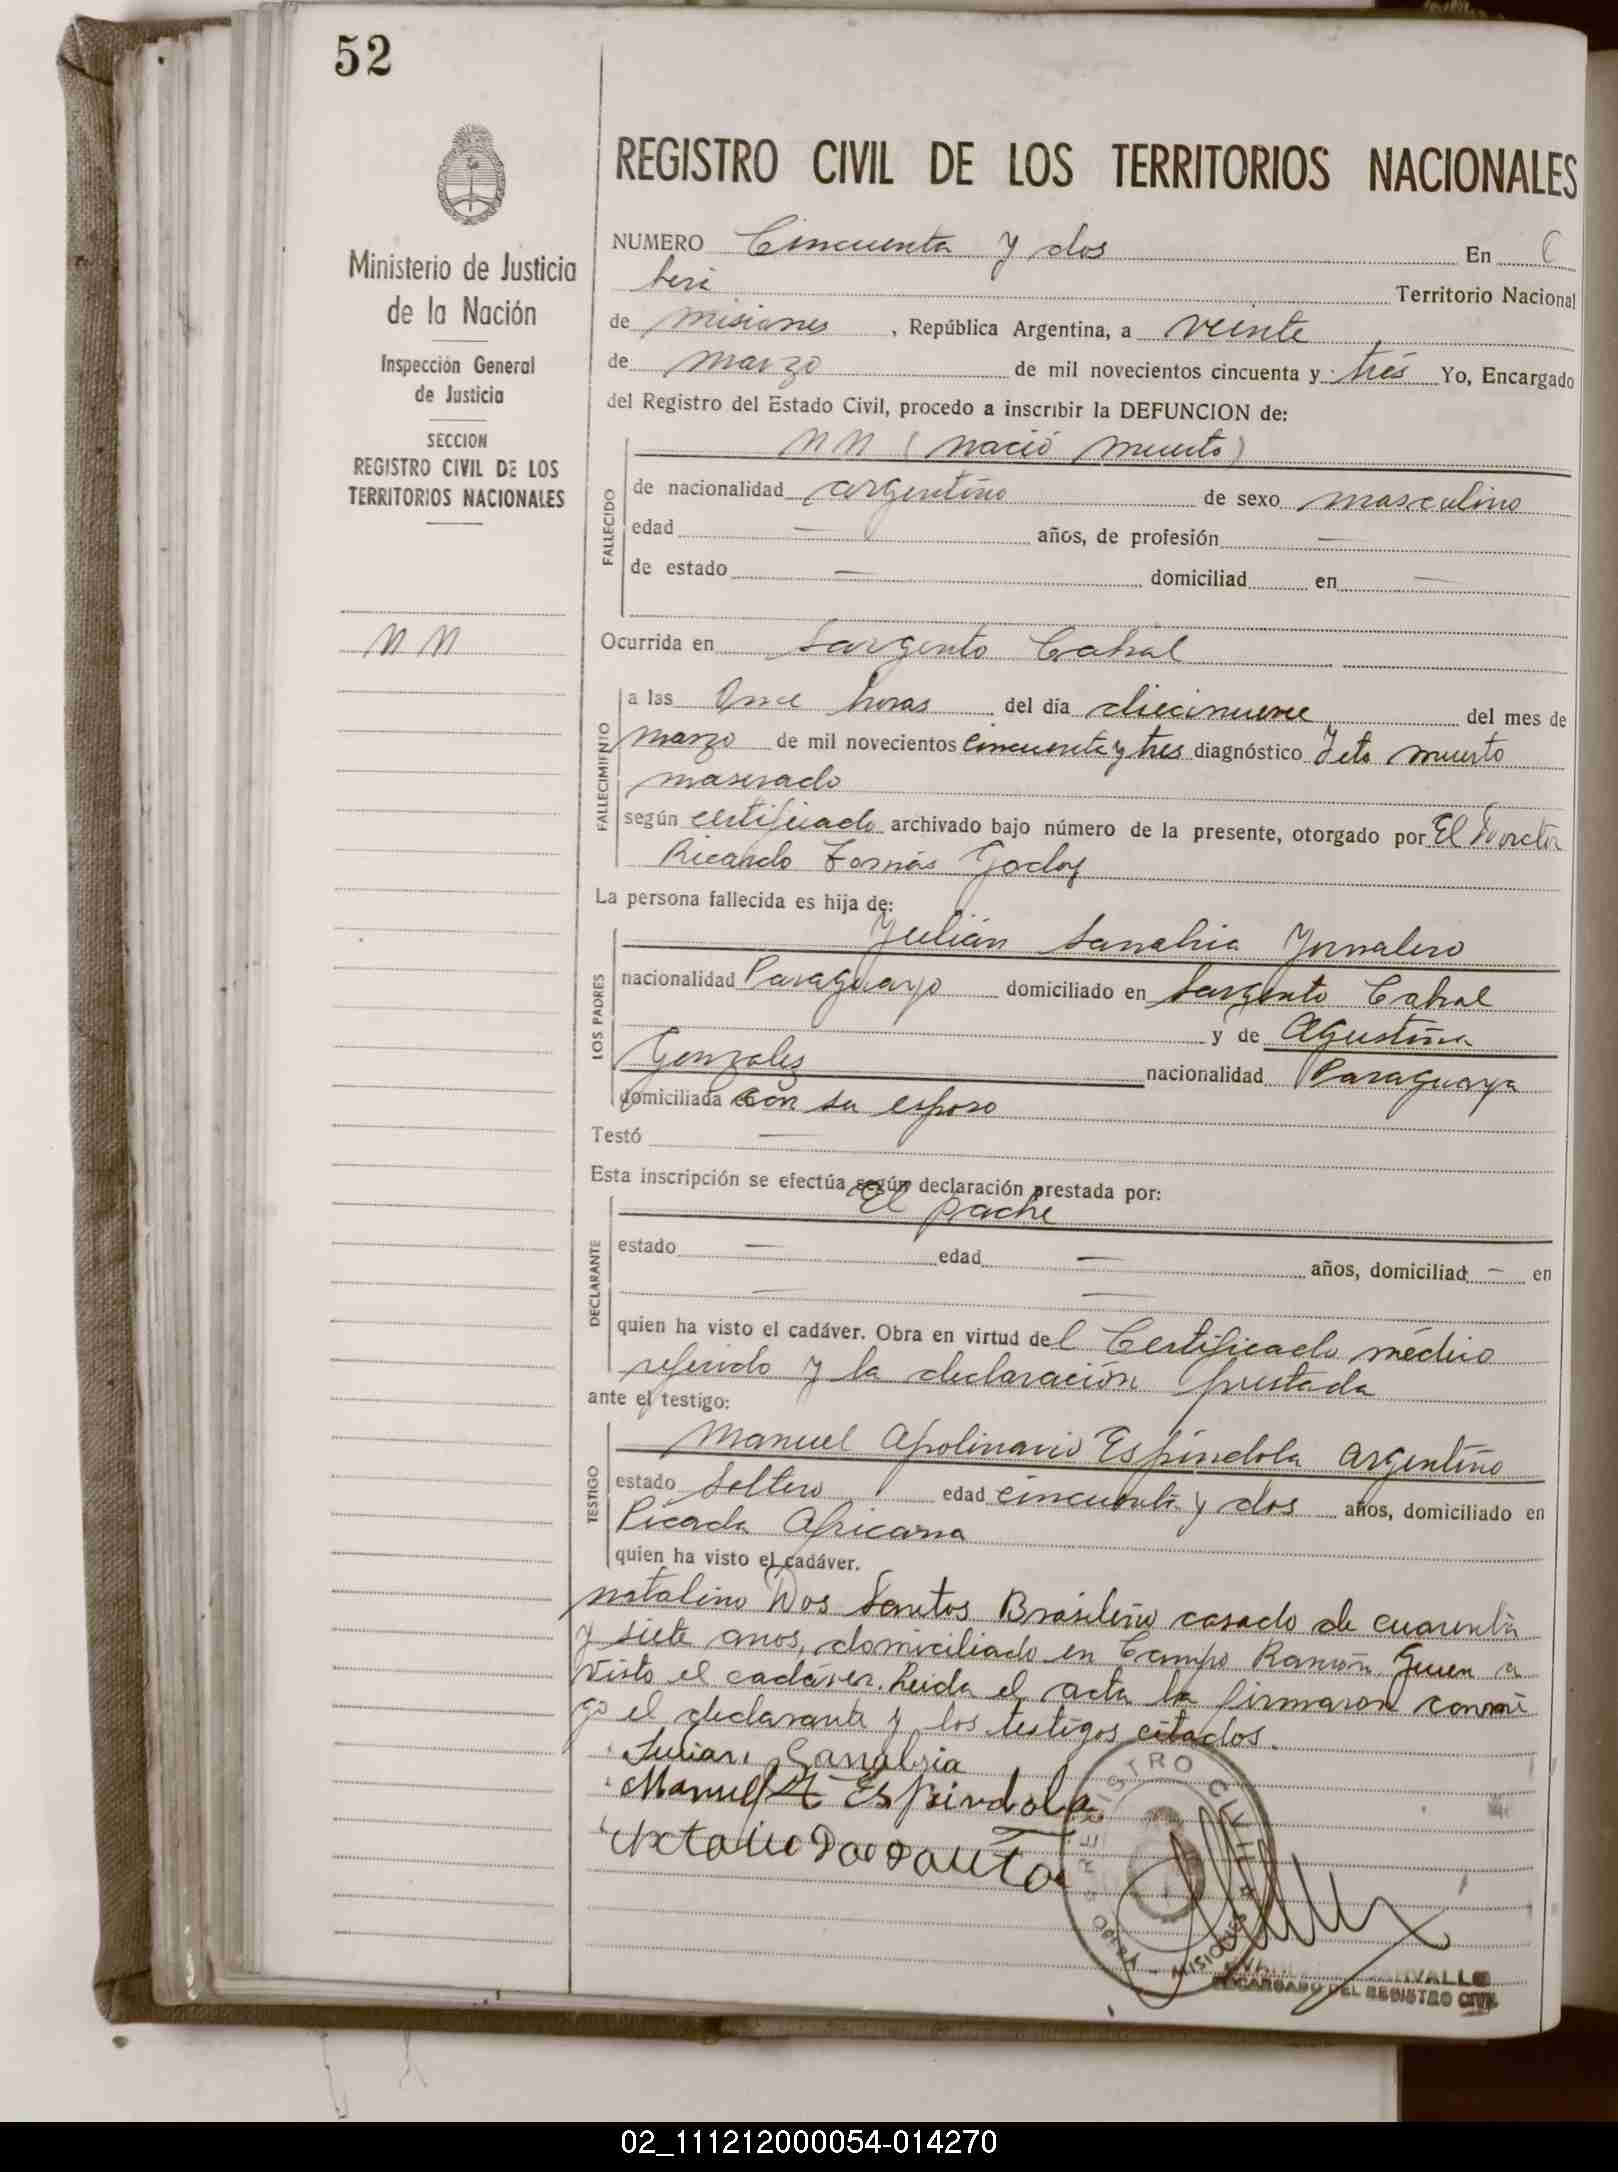 52
Ministerio de Justicia
de la Nación
Inspección General
de Justicia
SECCION
REGISTRO CIVIL DE LOS
TERRITORIOS NACIONALES
N N
REGISTRO CIVIL DE LOS TERRITORIOS NACIONALES
NUMERO Cincuenta y dos En
Territorio Nacional
de Misiones, República Argentina, a veinte
de marzo de mil novecientos cincuenta y tres Yo, Encargado
del Registro del Estado Civil, procedo a inscribir la DEFUNCION de:
N N (Nació muerto)
FALLECIDO
de nacionalidad argentino de sexo masculino
edad — años, de profesión —
de estado — domiciliad en —
Ocurrida en Sargento Cabral
FALLECIMIENTO
a las Once horas del día diecinueve del mes de
marzo de mil novecientos cincuenta y tres diagnóstico Feto muerto
macerado
según certificado archivado bajo número de la presente, otorgado por El Doctor
Ricardo Tomás Godoy
La persona fallecida es hija de:
LOS PADRES
Julián Sanabria Jornalero
nacionalidad Paraguayo domiciliado en Sargento Cabral
y de Agustina
Gonzales nacionalidad Paraguaya
domiciliada con su esposo
Testó —
Esta inscripción se efectúa según declaración prestada por:
El padre
DECLARANTE
estado — edad — años, domiciliad — en
— —
quien ha visto el cadáver. Obra en virtud del Certificado médico
referido y la declaración prestada
ante el testigo:
TESTIGO
Manuel Apolinario Espíndola argentino
estado Soltero edad cincuenta y dos años, domiciliado en
Picada Africana
quien ha visto el cadáver.
Natalino Dos Santos Brasileño casado de cuarenta
y siete anos, domiciliado en Campo Ramón Quien a
visto el cadáver. Leida el acta la firmaron conmi
go el declarante y los testigos citados.
Julian Sanabria
Manuel A Espindola
REGISTRO CIVIL
OBERA - MISIONES
ENCARGADO DEL REGISTRO CIVIL
02_111212000054-014270